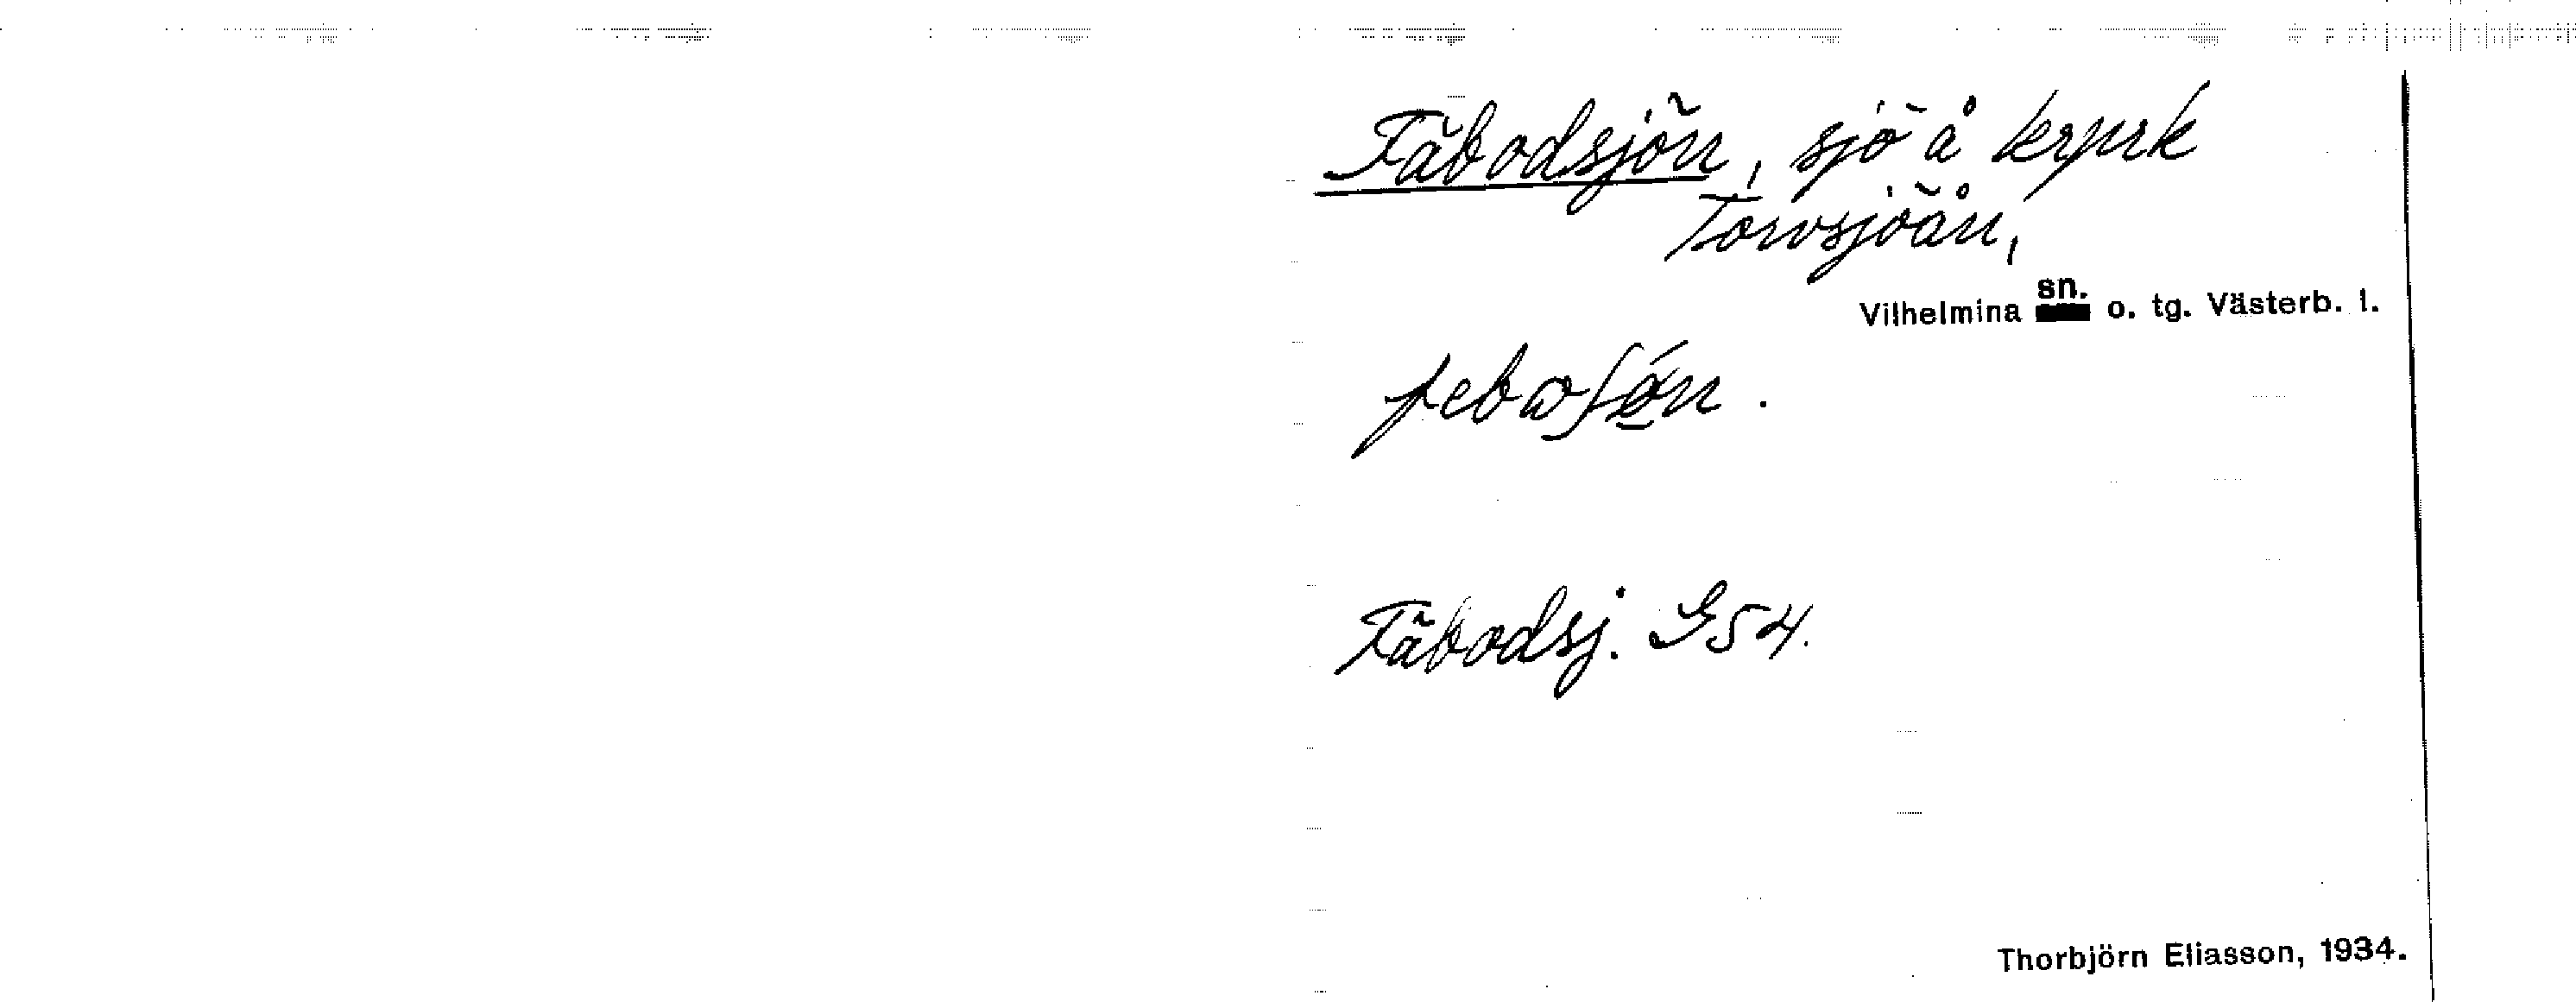 Fäbodsjön, sjö å krprk
Torvsjöån,
Vilhelmina sn. o. tg. Västerb. l.
Fäbodsj. G54.
Thorbjörn Eliasson, 1934.